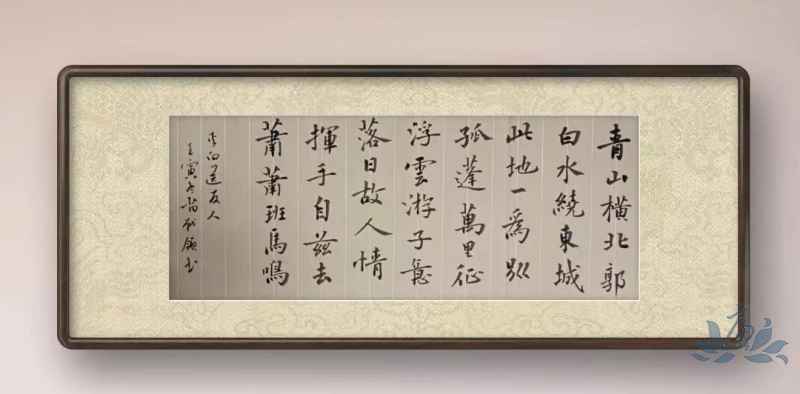 青山橫北郭
白水繞東城
此地一爲別
孤蓬萬里征
浮雲游子意
落日故人情
揮手自茲去
蕭蕭班馬鳴
李白送友人
壬寅 書